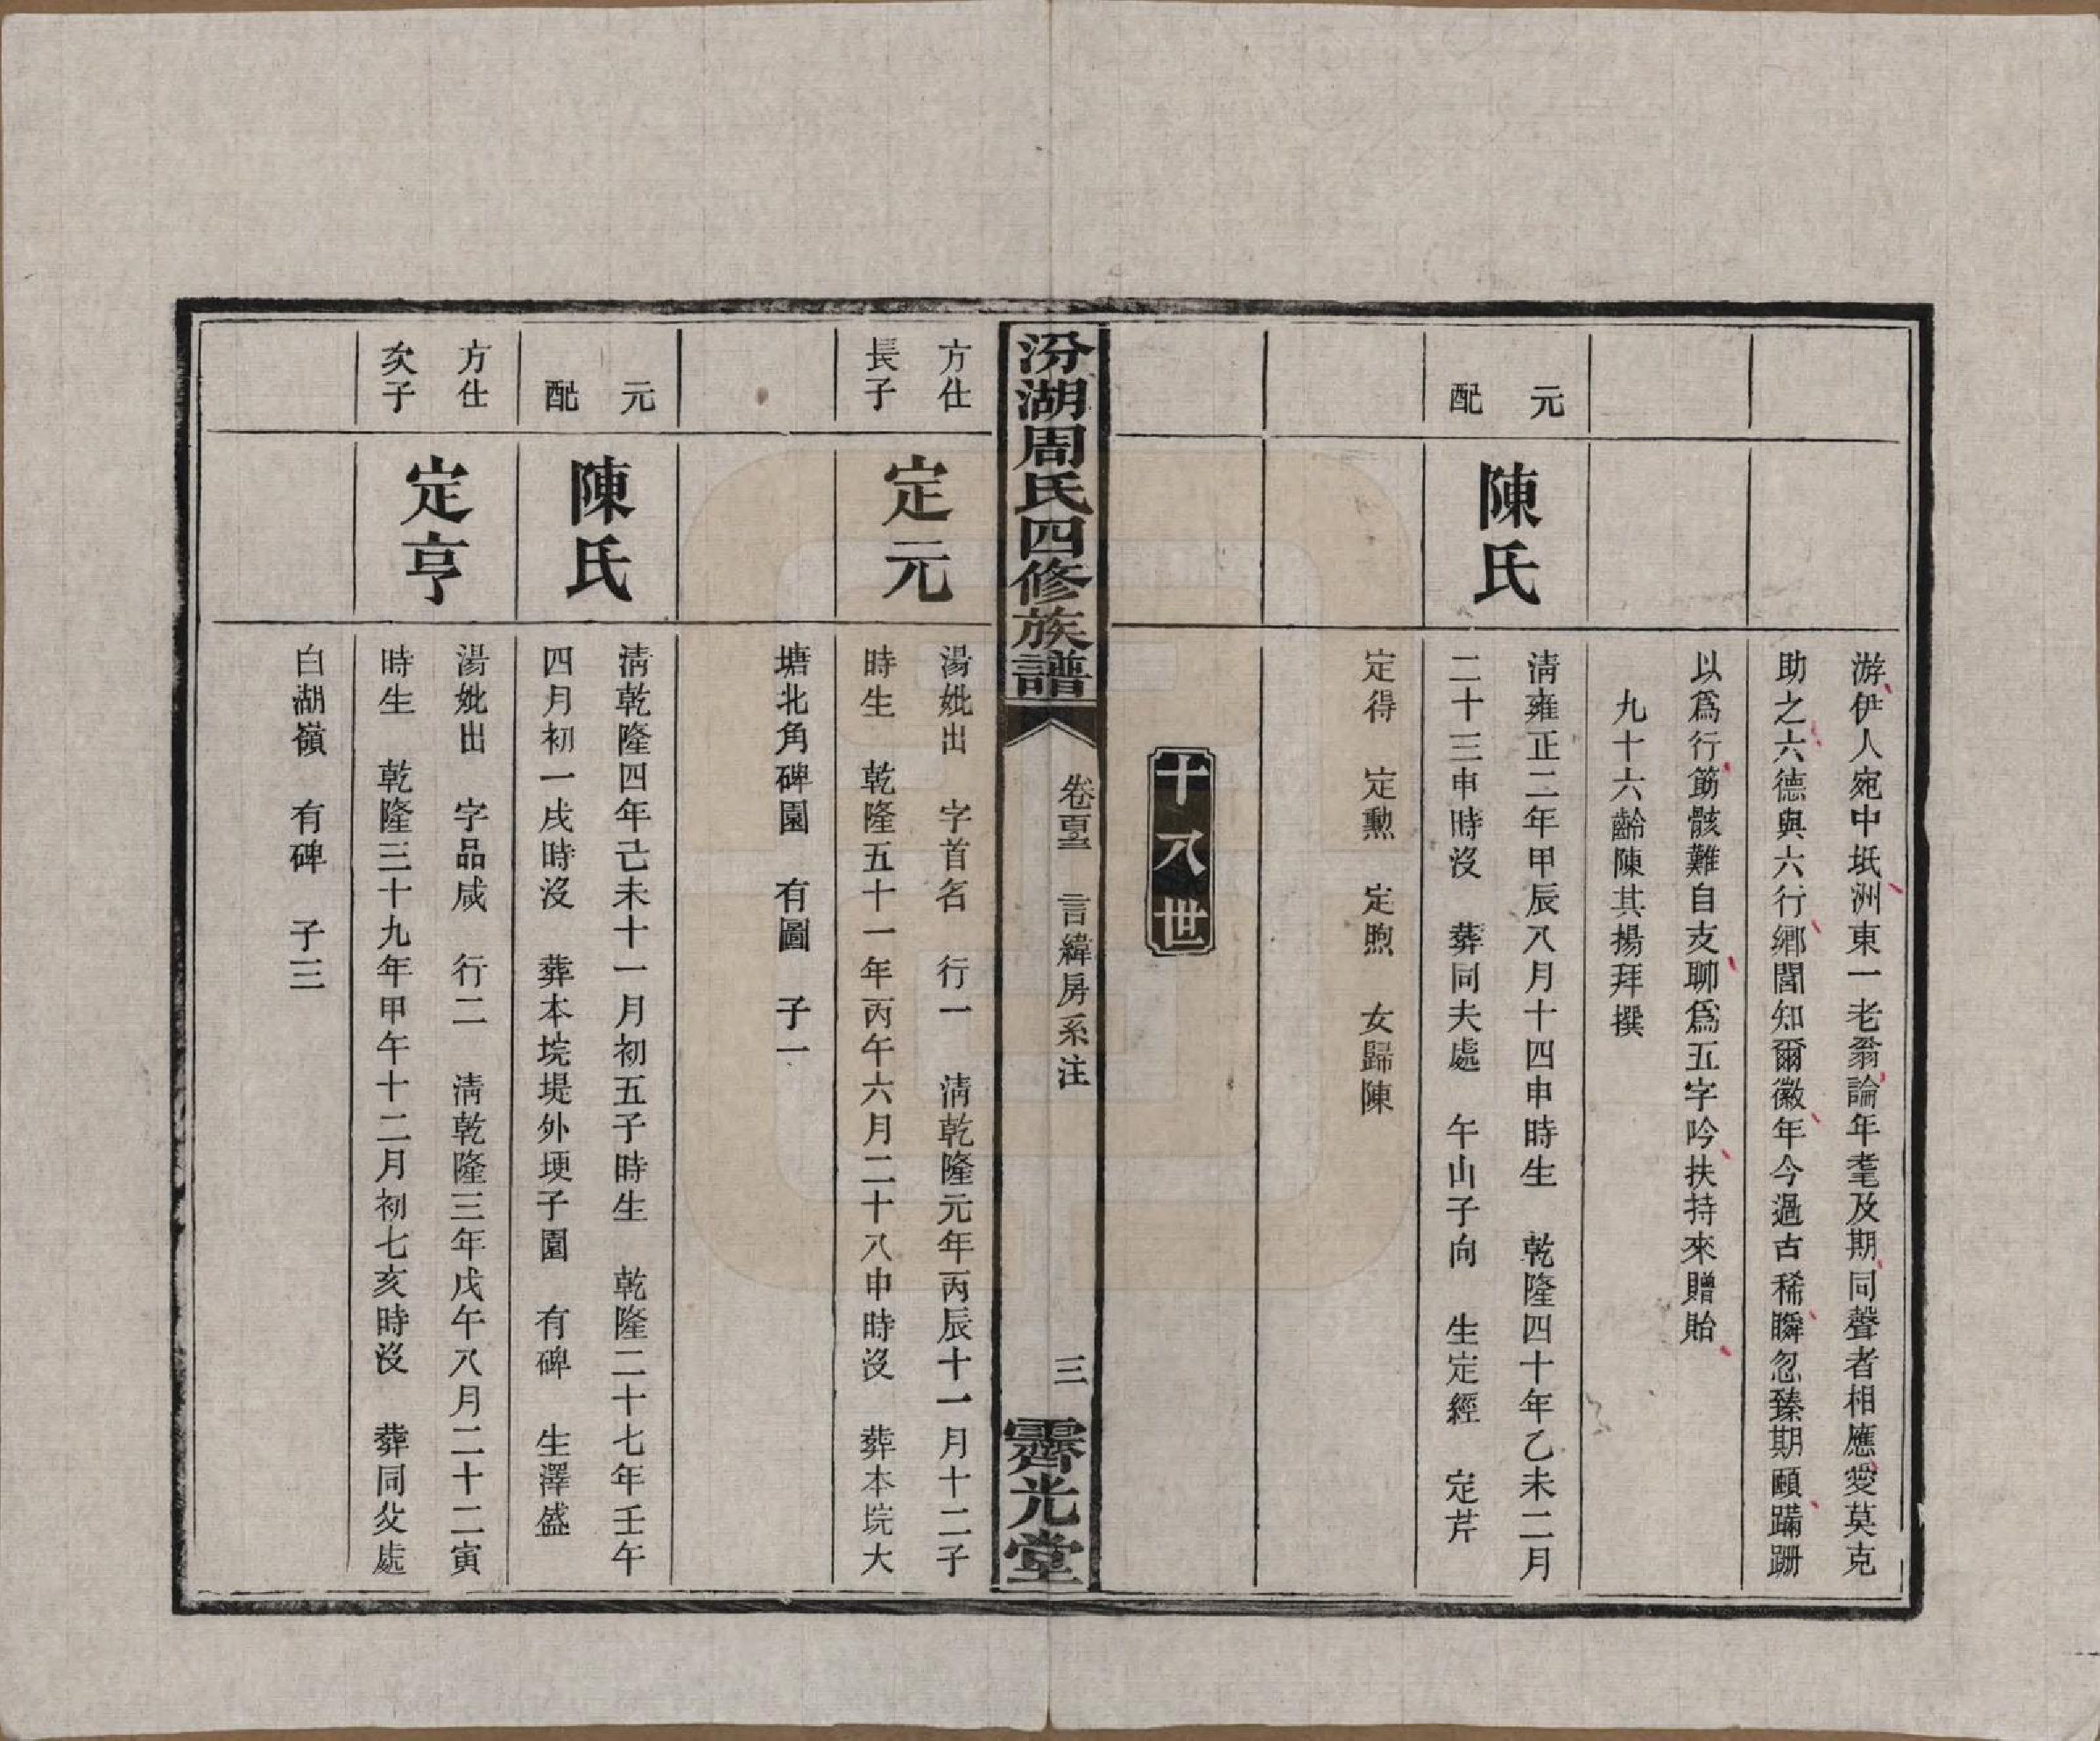 游伊人宛中坻洲東一老翁論年耄及期同聲者相應愛莫克
助之六德與六行鄉閭知爾徽年今過古稀瞬忽臻期頤蹣跚
以為行筯骸難自支聊為五字吟扶持來贈貽
九十六齡陳其揚拜撰
元配
陳氏
淸雍正二年甲辰八月十四申時生 乾隆四十年乙未二月
二十三申時沒 葬同夫處 午山子向 生定經 定芹
定得 定勲 定煦 女歸陳
十八世
汾湖周氏四修族譜
卷 言緯房系注
三
霽光堂
方仕長子
定元
湯妣出 字首名 行一 淸乾隆元年丙辰十一月十二子
時生 乾隆五十一年丙午六月二十八申時沒 葬本垸大
塘北角碑園 有圖 子一
元配
陳氏
淸乾隆四年己未十一月初五子時生 乾隆二十七年壬午
四月初一戌時沒 葬本垸堤外埂子園 有碑 生澤盛
方仕次子
定亨
湯妣出 字品咸 行二 淸乾隆三年戊午八月二十二寅
時生 乾隆三十九年甲午十二月初七亥時沒 葬同父處
白湖嶺 有碑 子三